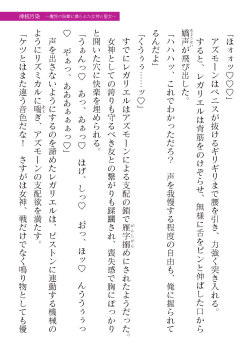 神核汚染
「ほォォッ♡♡♡」
　アズモーンはペニスが抜けるギリギリまで腰を引き、力強く突き入れる。
　すると、レガリエルは背筋をのけぞらせ、無様に舌をピンと伸ばした口から
嬌声が飛び出した。
「ハハハッ、これでわかっただろ？　声を我慢する程度の自由も、俺に握られて
るんだよ」
「くうぅぅ……ッ♡」
　すでにレガリエルはアズモーンによる支配の鎖で雁字搦めにされたようだった。
　女神としての誇りも守るべき友との繋がりも蹂躙され、喪失感で胸にぽっかり
と開いた穴に快楽を埋められる。
「うぁんっ♡　あっ、あっ♡　ほげ、しっ♡　おっ、ほッ♡　んううぅぅっ
♡　ぞぁっ、あああぁぁぁっ♡」
　声を出さないようにするのを諦めたレガリエルは、ピストンに連動する機械の
ようにリズミカルに喘ぎ、アズモーンの支配欲を満たす。
「ケツとはまた違う音色だな！　さすがは女神、戦だけでなく鳴り物としても優